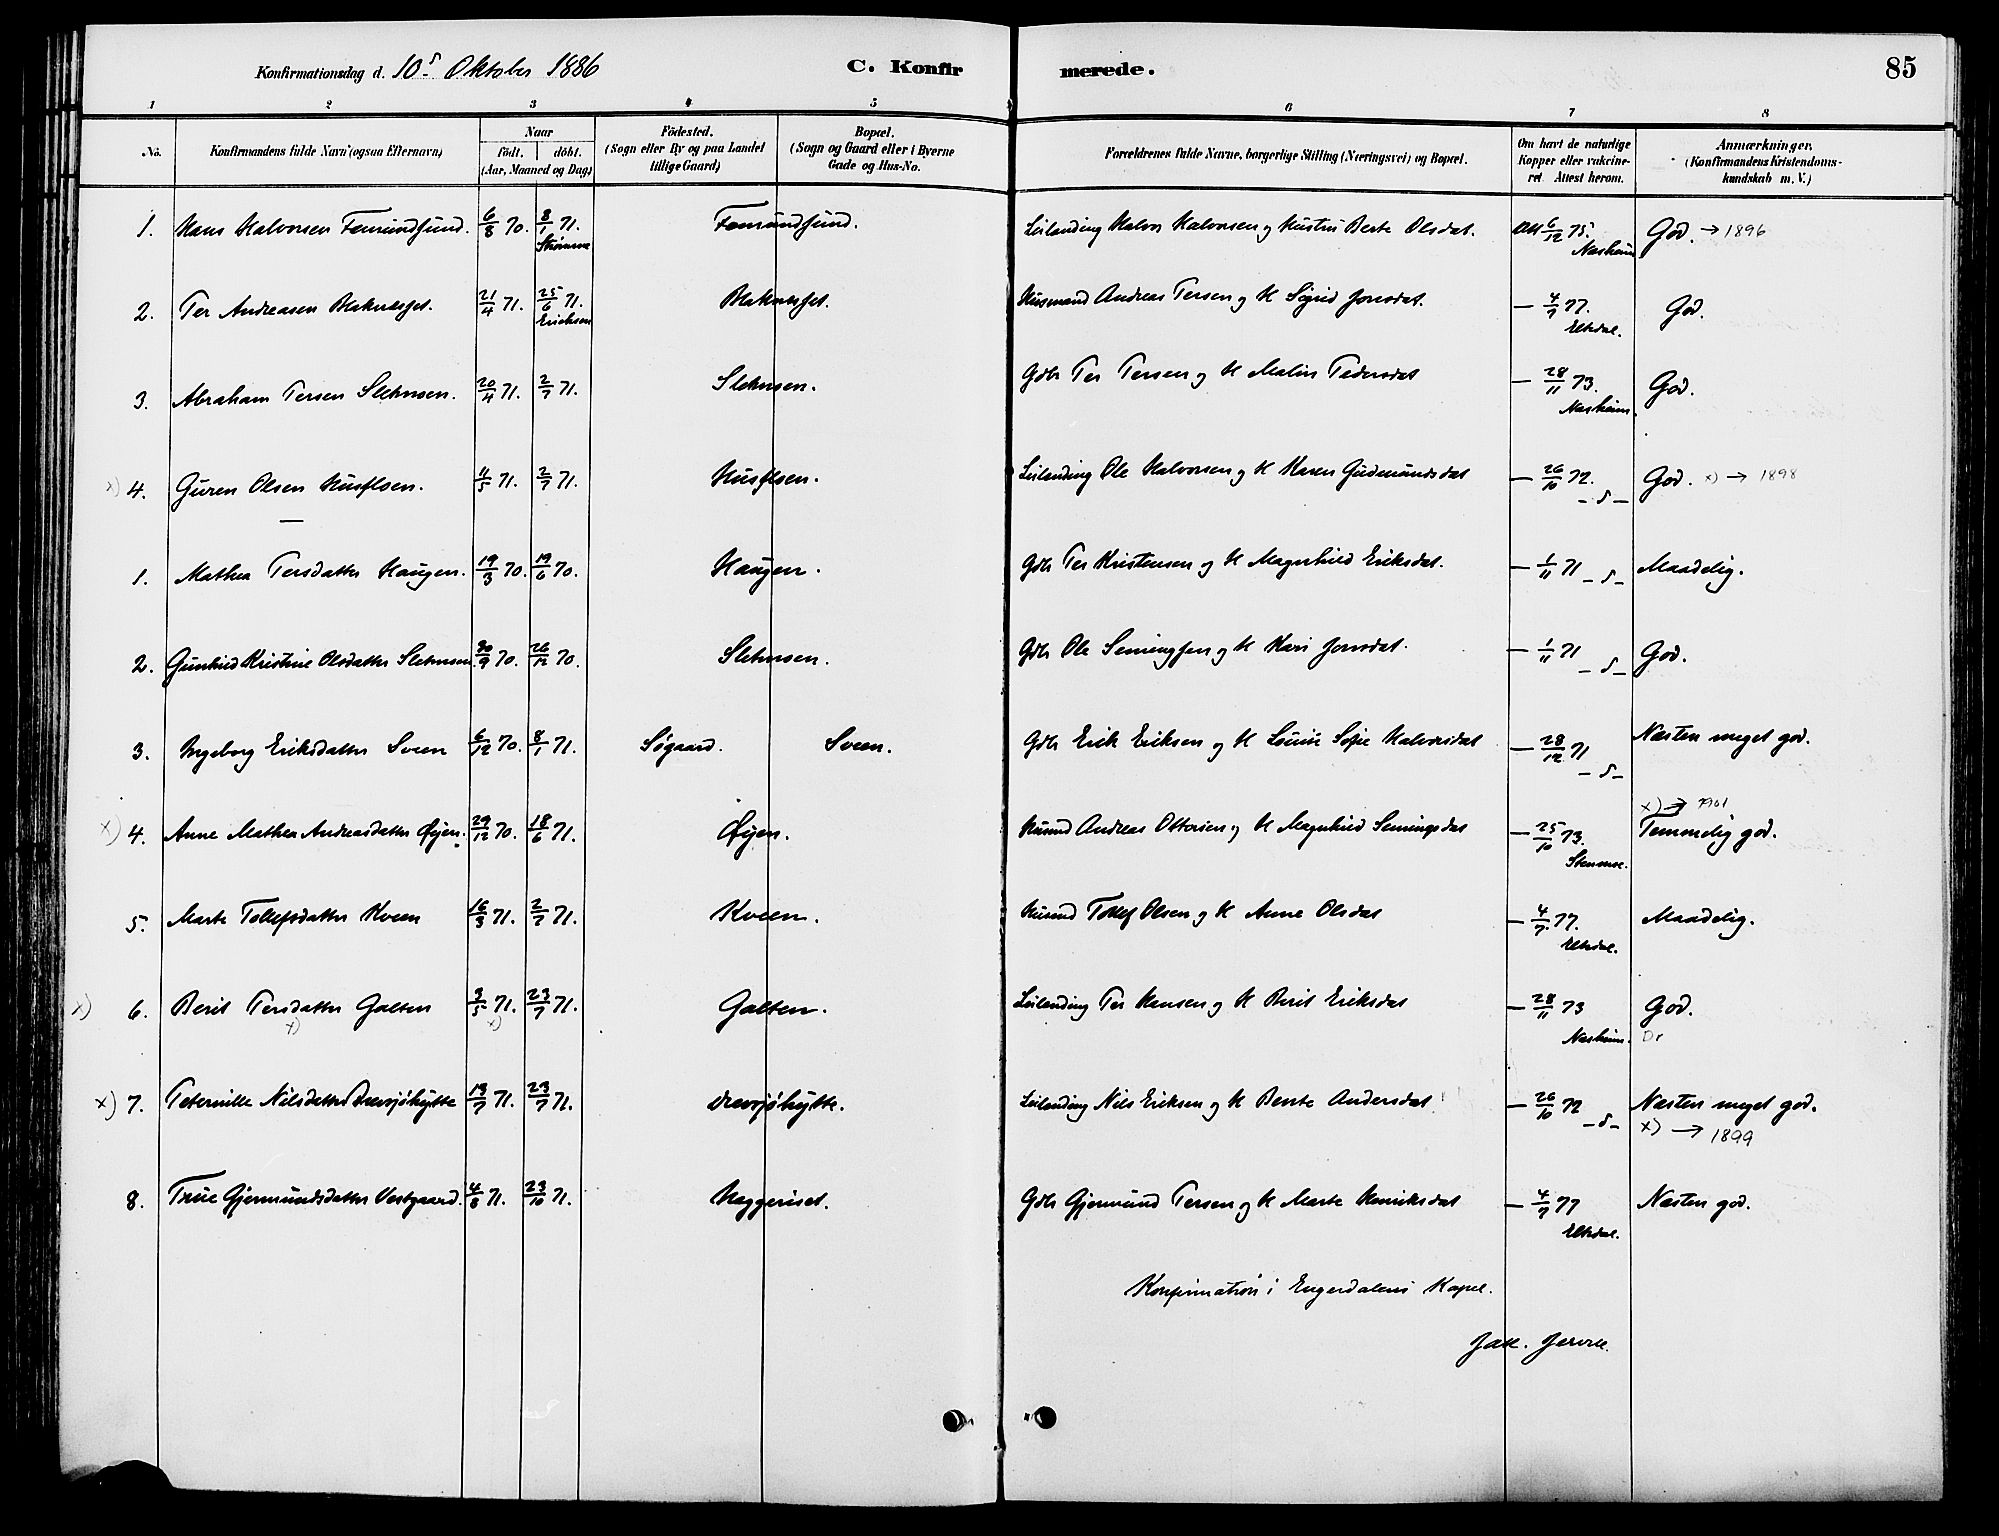 Konfirmationsdag d. 10 Oktober 1886 C. Konfirmerede. 85
1 2 3 4 5 6 7 8
No. Konfirmandens fulde Navn (ogsaa Efternavn) Naar födt. döbt. (Aar, Maaned og Dag) Födested. (Sogn eller By og paa Landet tillige Gaard) Bopæl. (Sogn og Gaard eller i Byerne Gade og Hus-No. Forældrenes fulde Navne, borgerlige Stilling (Næringsvei) og Bopæl. Om havt de naturlige Kopper eller vakcineret Attest herom. Anmærkninger. (Konfirmandens Kristendomskundskab m. V.)
1. Hans Halvorsen Femundsund. 6/8 70. 8/1 71. Femundsund. Leilending Halvor Halvorsen og Hustru Berte Olsdat. 6/12 75. Nasheim God. → 1896
2. Per Andreasen 21/4 71. 25/6 71. Husmand Andreas Persen og H Sigrid Jonsdat. — 4/7 77. God.
3. Abraham Persen Sletmoen. 20/4 71. 2/7 71. Sletmoen. Gdbr Per Persen og H Malin Pedersdat — 28/11 73. Nasheim. God.
x) 4. Guren Olsen Husfloen. 11/5 71. 2/7 71. Husfloen. Leilending Ole Halvorsen og H Karen Gudmundsdat — 26/10 72. God. x) → 1898
1. Mathea Persdatter Haugen. 19/3 70. 19/6 70. Haugen. Gdbr Per Kristensen og H Magnhild Eriksdat. — 1/11 71 Maadelig.
2. Gunhild Kristine Olsdatter Sletmoen. 30/9 70. 26/12 70. Sletmoen. Gdbr Ole Semingsen og H Kari Jonsdat. — 1/11 71 God.
3. Ingeborg Eriksdatter Sveen 6/12 70. 8/1 71. Søgaard. Sveen. Gdbr Erik Eriksen og H Louise Sofie Halvorsdat — 28/12 71 Næsten meget god.
x) 4. Anne Mathea Andreasdatter Øyen. 29/12 70. 18/6 71. Øyen. Husmd Andreas Ottersen og H Magnhild Semingsdat — 25/10 73. x) → 1901 Temmelig god.
5. Marte Tollefsdatter Kveen 16/3 71. 2/7 71. Kveen. Husmd Tollef Olsen og H Anne Olsdat — 4/7 77. Maadelig.
x) 6. Berit Persdatter Galten 3/5 71. 23/7 71. Galten. Leilending Per Hansen og H Berit Eriksdat — 28/11 73 Nasheim. God.
x) 7. Peternille Nilsdatter Drevsjøhytte 13/7 71. 23/7 71. Drevsjøhytte. Leilending Nils Eriksen og H Bente Andersdat — 26/10 72 Næsten meget god.
x) → 1899
8. Trine Gjermundsdatter Vestgaard. 4/8 71. 23/10 71. Heggeriset. Gdbr Gjermund Persen og H Marte Henriksdat — 4/7 77 Næsten god.
Konfirmation i Engerdalens Kapel.